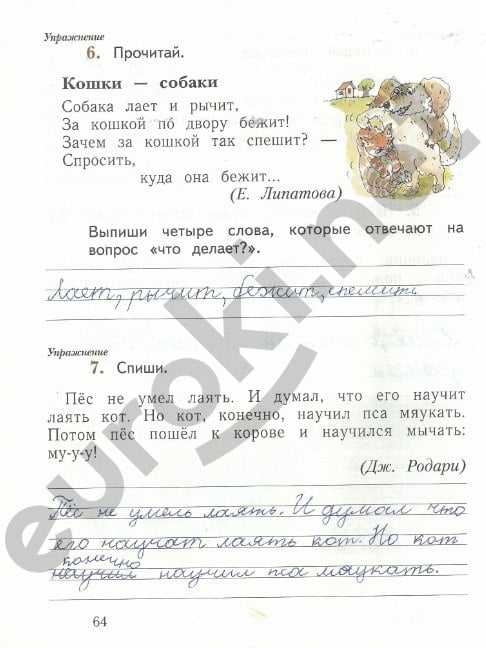 Упражнение
6. Прочитай.
Кошки — собаки
Собака лает и рычит,
За кошкой по́ двору бежит!
Зачем за кошкой так спешит? —
Спросить,
куда она бежит...
(Е. Липатова)
Выпиши четыре слова, которые отвечают на
вопрос «что делает?».
Лает, рычит, бежит, спешит
Упражнение
7. Спиши.
Пёс не умел лаять. И думал, что его научит
лаять кот. Но кот, конечно, научил пса мяукать.
Потом пёс пошёл к корове и научился мычать:
му-у-у!
(Дж. Родари)
Пёс не умель лаять. И думал что
его научат лаять кот. Но кот
конечно
научил научил пса мяукать.
64
euroki.net